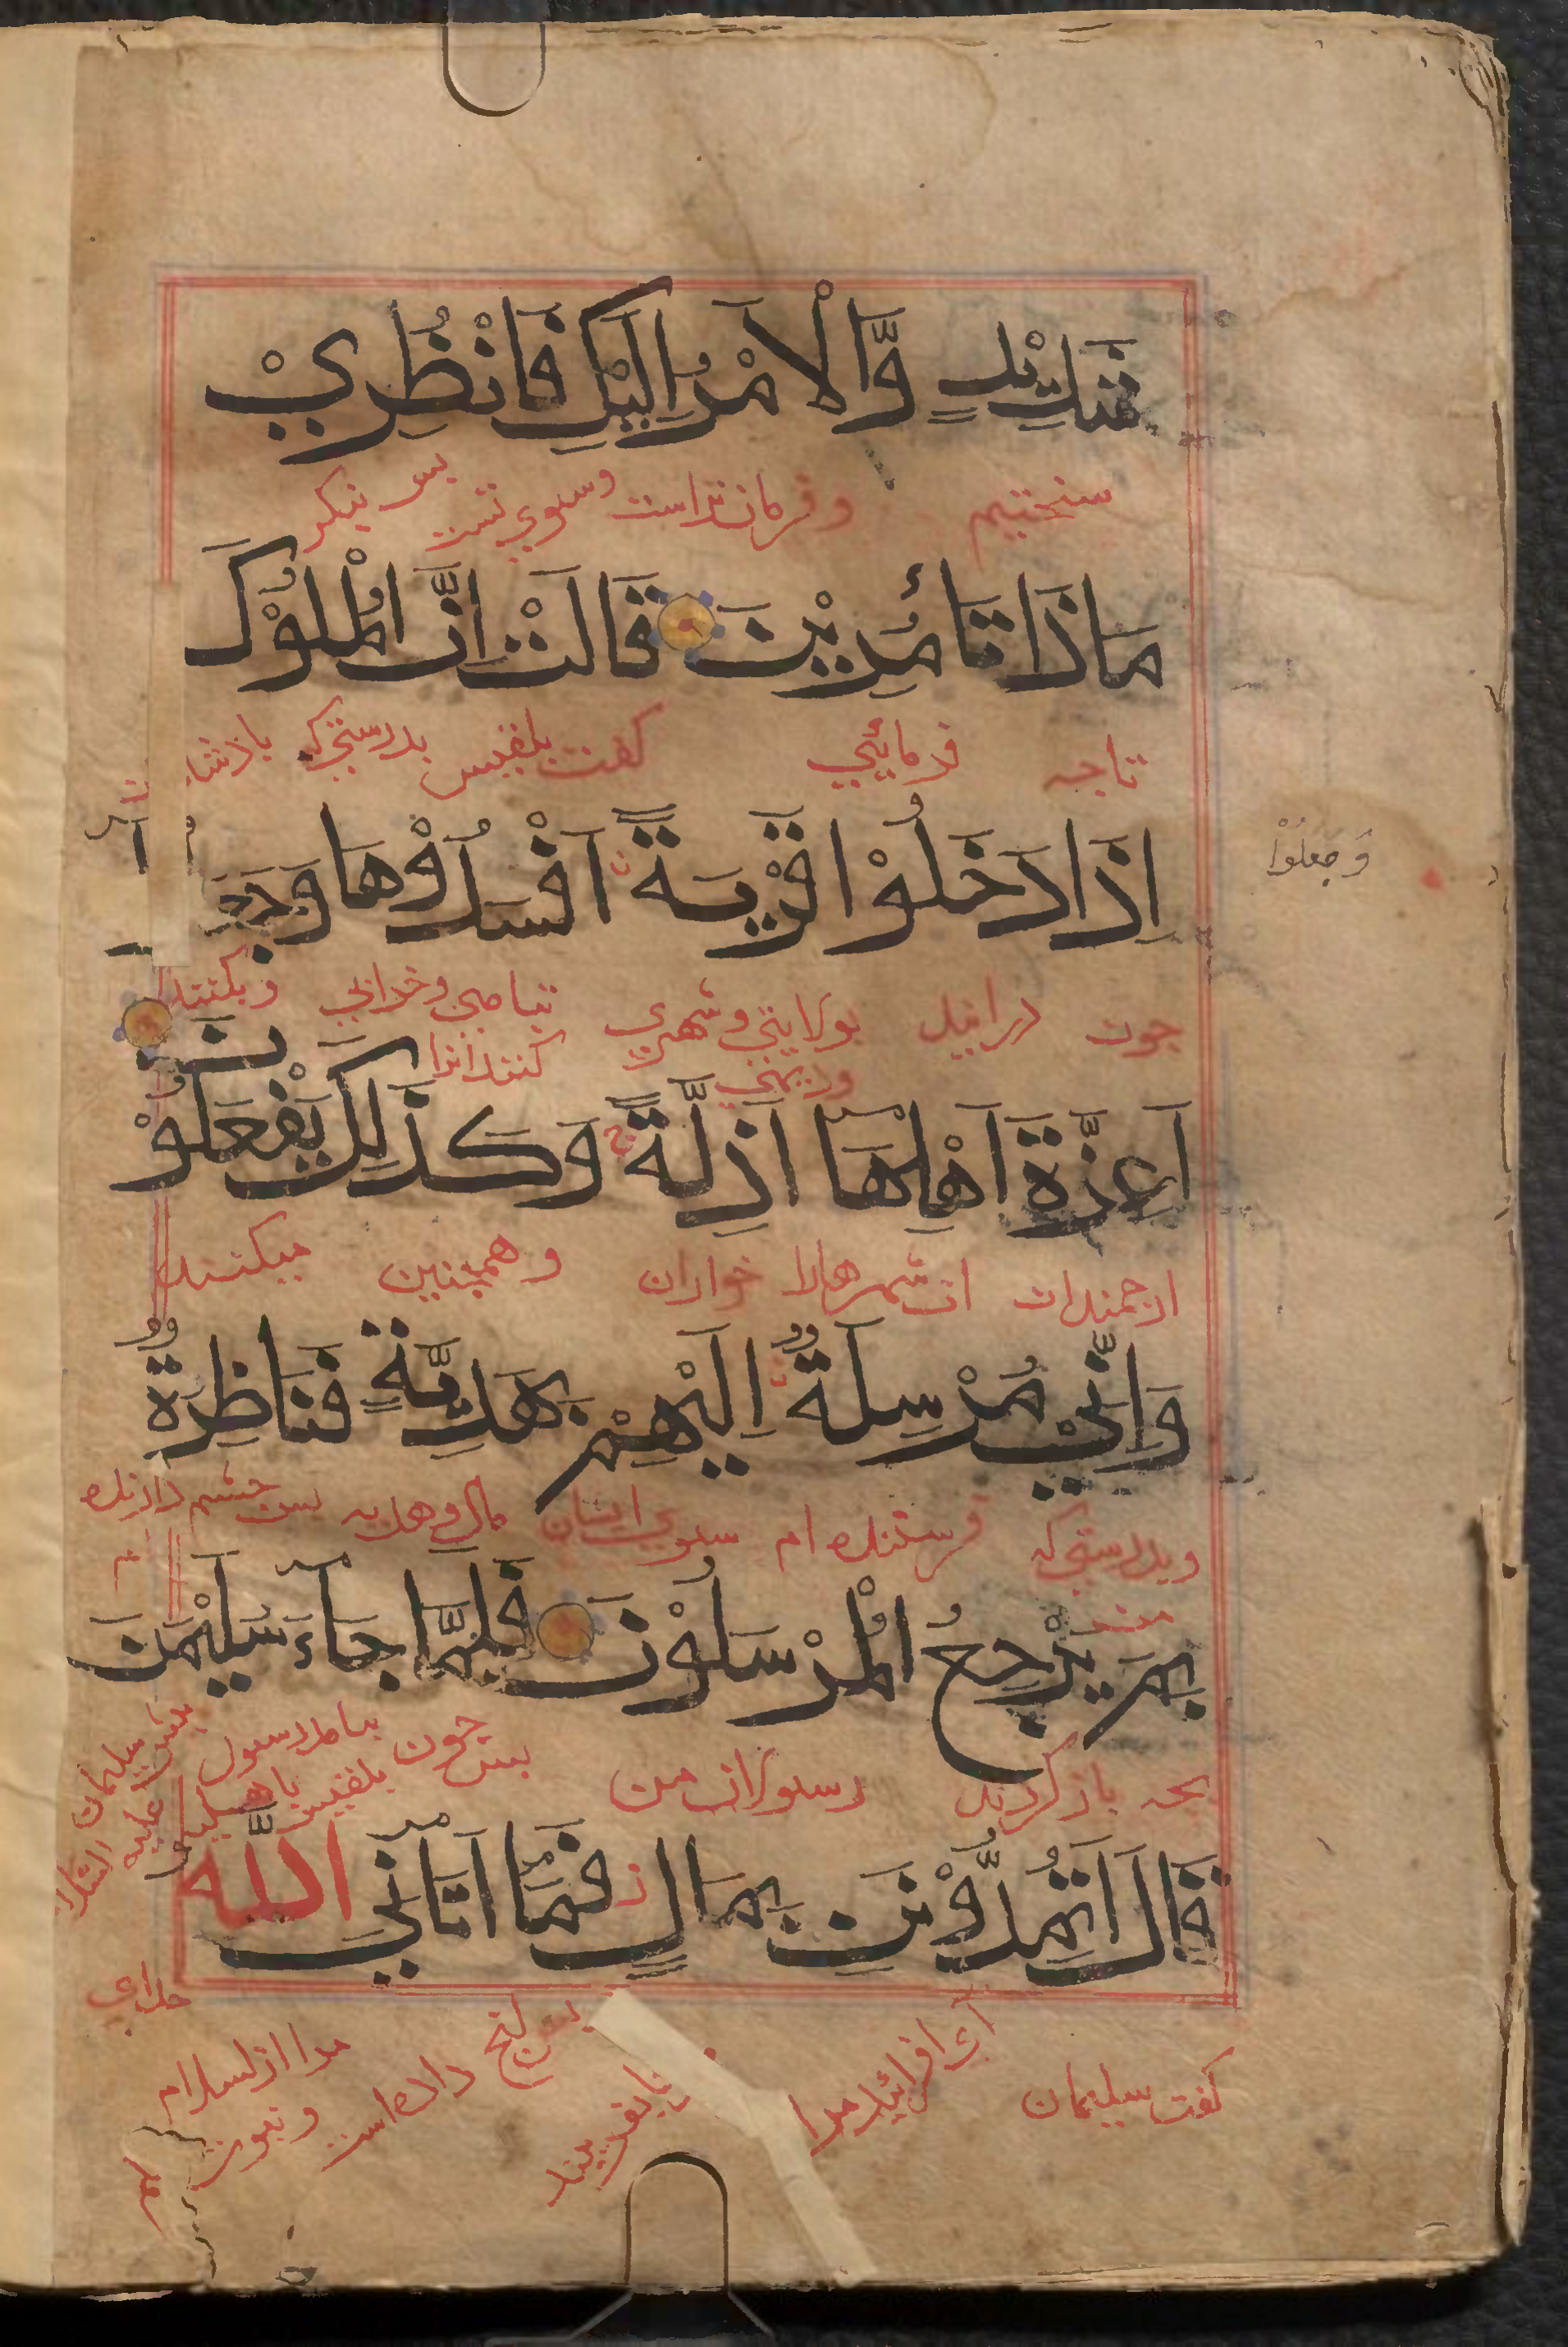 شَدِيْدٍ وَّالْاَمْرُ اِلَيْكِ فَانْظُرِيْ
سختیم وفرمان تراست وسوي تست بس بنكر
مَاذَا تَاْمُرِيْنَ قَالَتْ اِنَّ الْمُلُوْكَ
تاجه فرمائي كفت بلقيس بدرستي كه باذشا
اِذَا دَخَلُوْا قَرْيَةً اَفْسَدُوْهَا وَجَعَ
وَجَعَلُوْا
جون درايند بولايتي وشهري تباهي وخرابي وبكنند
وديهي كنند انرا
اَعِزَّةَ اَهْلِهَا اَذِلَّةً وَكَذٰلِكَ يَفْعَلُوْنَ
ارجمندان ان شهرهارا خواران وهمچنين ميكنند
وَاِنِّيْ مُرْسِلَةٌ اِلَيْهِمْ بِهَدِيَّةٍ فَنَاظِرَةٌ
وبدرستي كه فرستنده ام سوي ايشان مال وهديه بس چشم دارنده
بِمَ يَرْجِعُ الْمُرْسَلُوْنَ فَلَمَّا جَآءَ سُلَيْمٰنَ
بجه باز كردند رسولان من بس جون بيامد رسول بيش سليمان
بلقيس عليه السلام
قَالَ اَتُمِدُّوْنَنِ بِمَالٍ فَمَآ اٰتَانِيَ اللّٰهُ
كفت سليمان مرا بس انچ داده است مرا از اسلام خداي
ونبوت